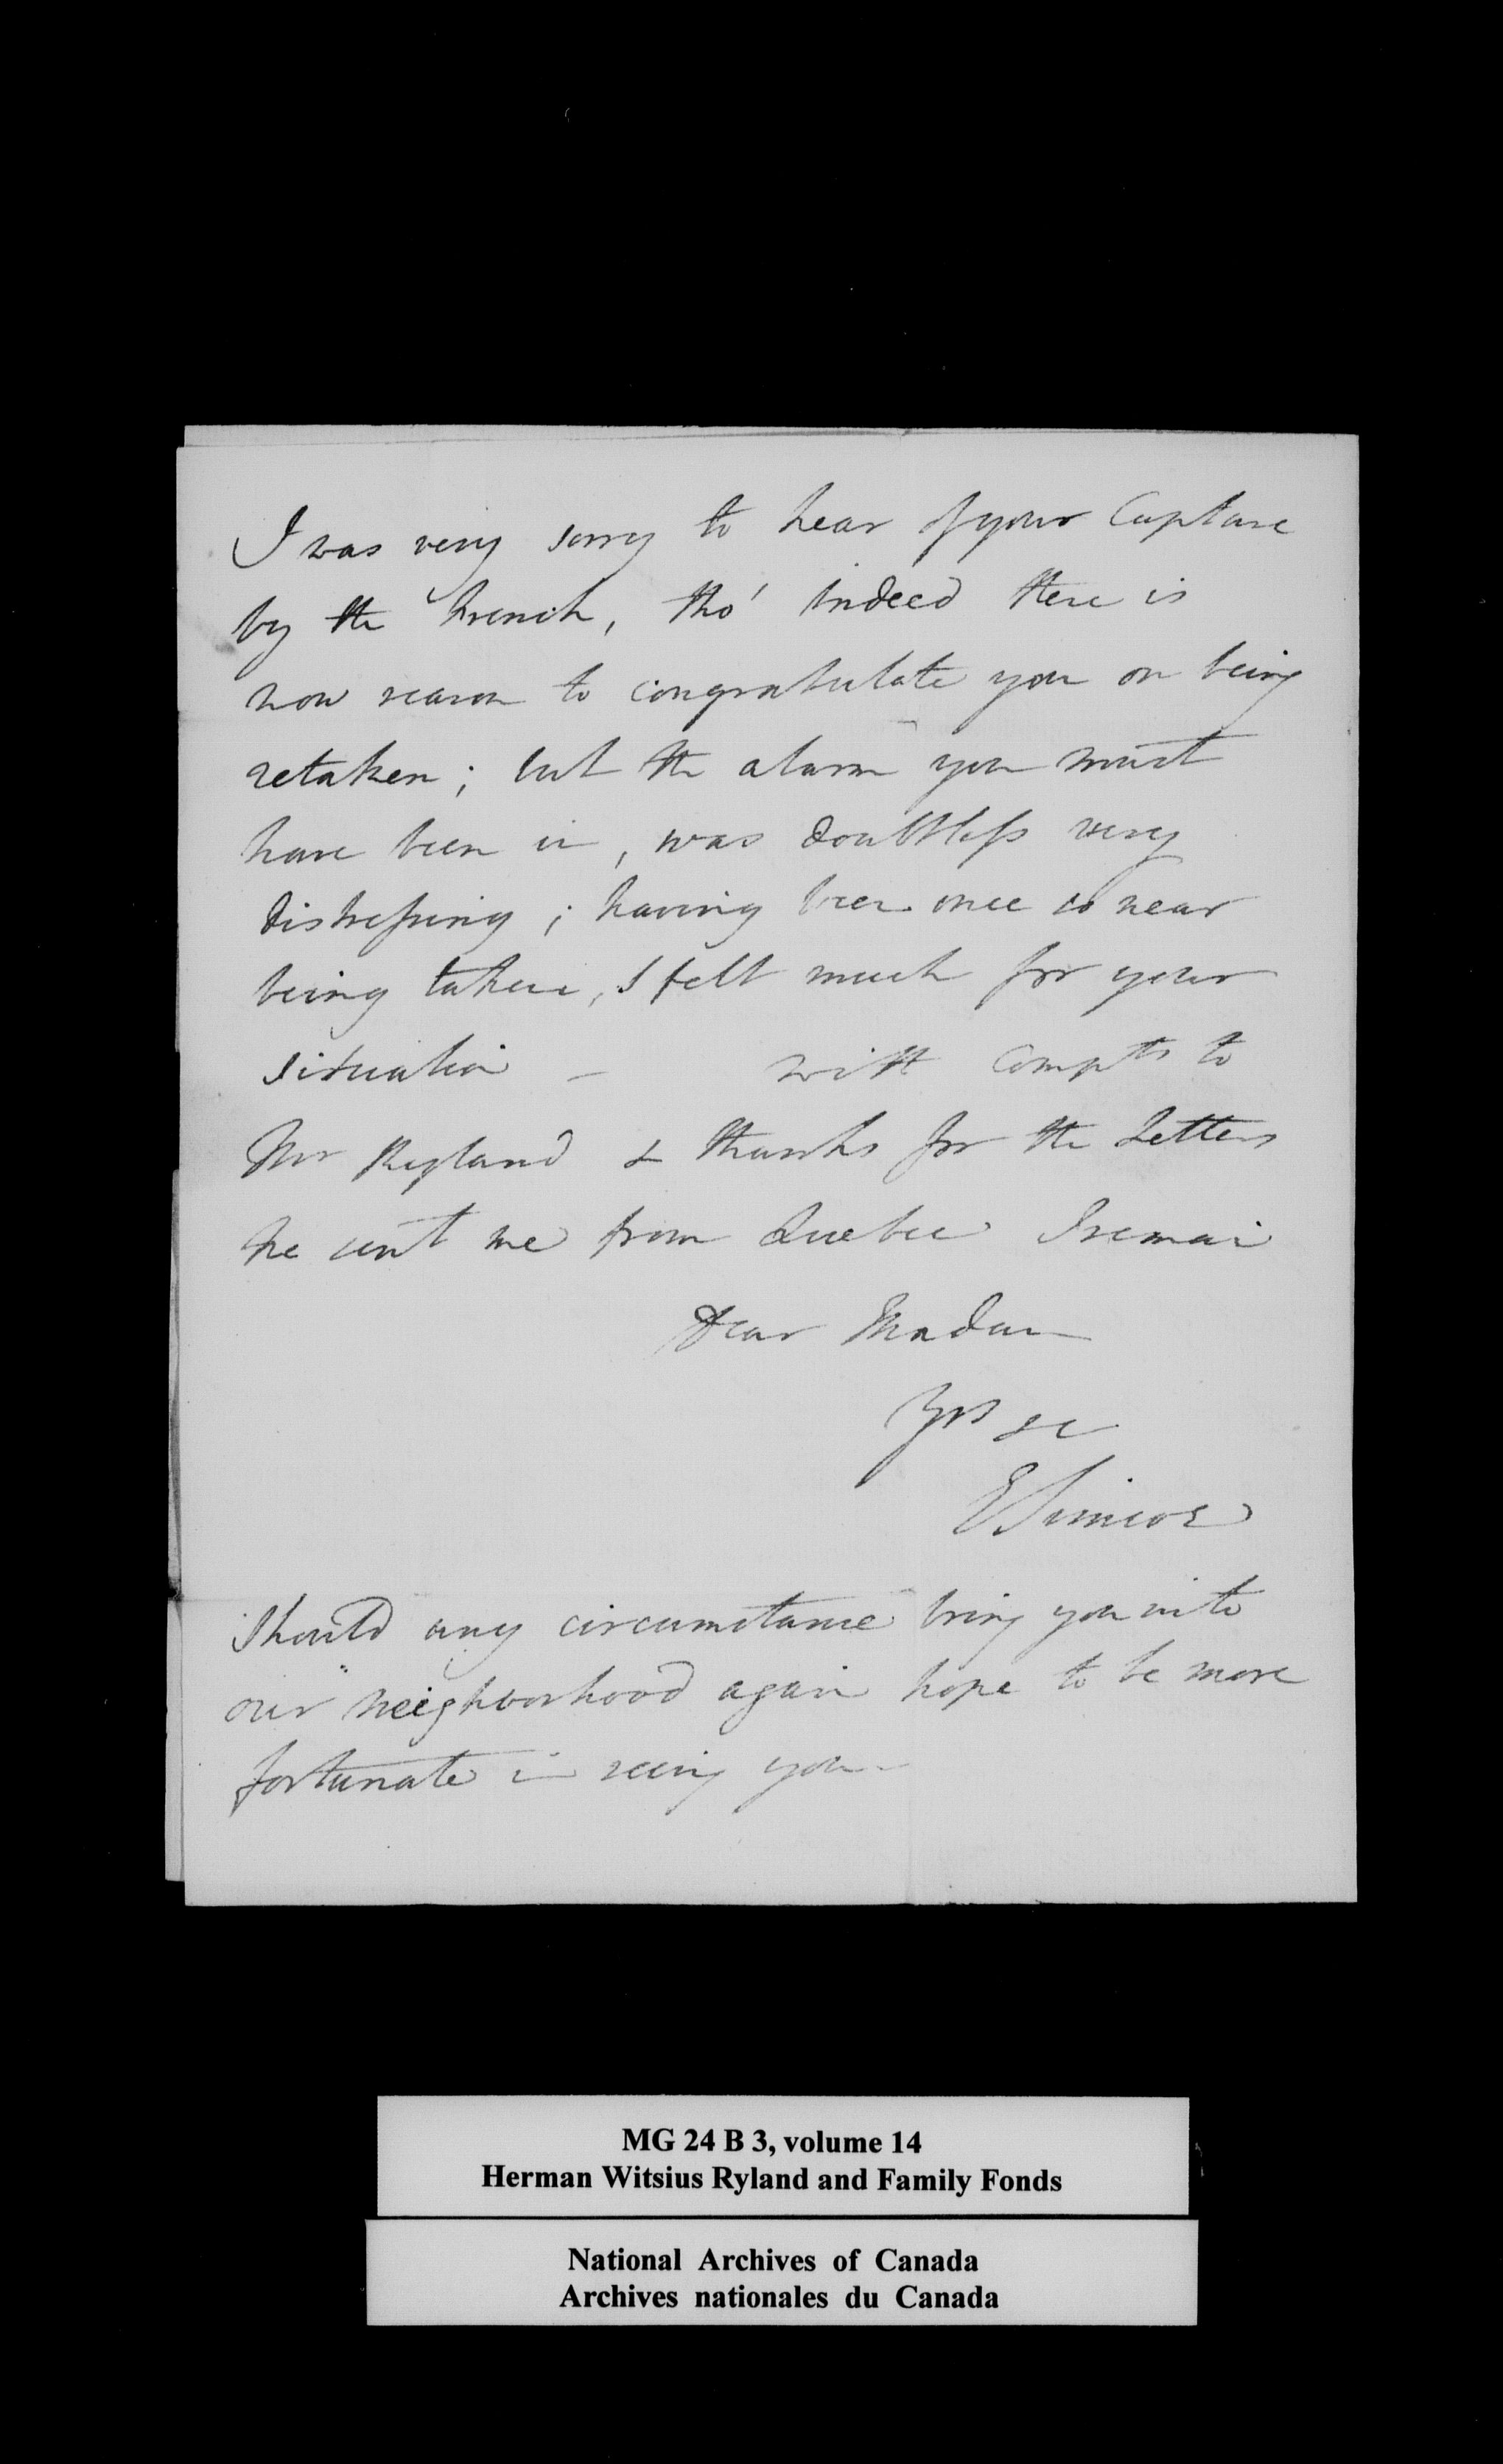 I was very sorry to hear of your Capture
by the French, tho' indeed there is
now reason to congratulate you on being
retaken; but the alarm you must
have been in, was doubtless very
distressing; having been once so near
being taken, I felt much for your
situation – with Compts to
Mr Ryland & thanks for the Letters
he sent me from Quebec I remain
Dear Madam
Yrs &c
E Simcoe
Should any circumstance bring you into
our neighborhood again hope to be more
fortunate in seeing you
MG 24 B 3, volume 14
Herman Witsius Ryland and Family Fonds
National Archives of Canada
Archives nationales du Canada